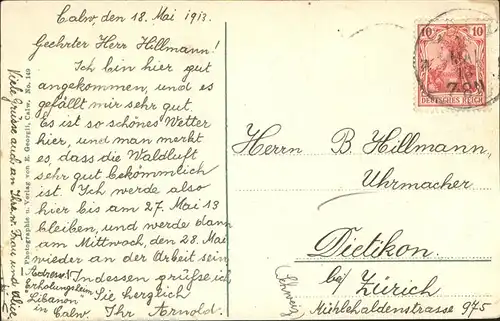 Calw, den 18. Mai 1913.
Geehrter Herr Hillmann!
Ich bin hier gut
angekommen, und es
gefällt mir sehr gut.
Es ist so schönes Wetter
hier, und man merkt
es, dass die Waldluft
sehr gut bekömmlich
ist. Ich werde also
hier bis am 27. Mai 13
bleiben, und werde dann
am Mittwoch, den 28. Mai
wieder an der Arbeit sein
Indessen grüsse ich
Sie herzlich
Ihr Arnold.
Adresse:
Erholungsheim
"Libanon"
in Calw.
Viele Grüsse auch an Ihre w. Frau und
Photographie u. Verlag von E. Georgii, Calw. No. 140
10 10
DEUTSCHES REICH
Herrn B. Hillmann,
Uhrmacher
Dietikon.
bei Zürich
(Schweiz)
Mühlehaldenstrasse 975